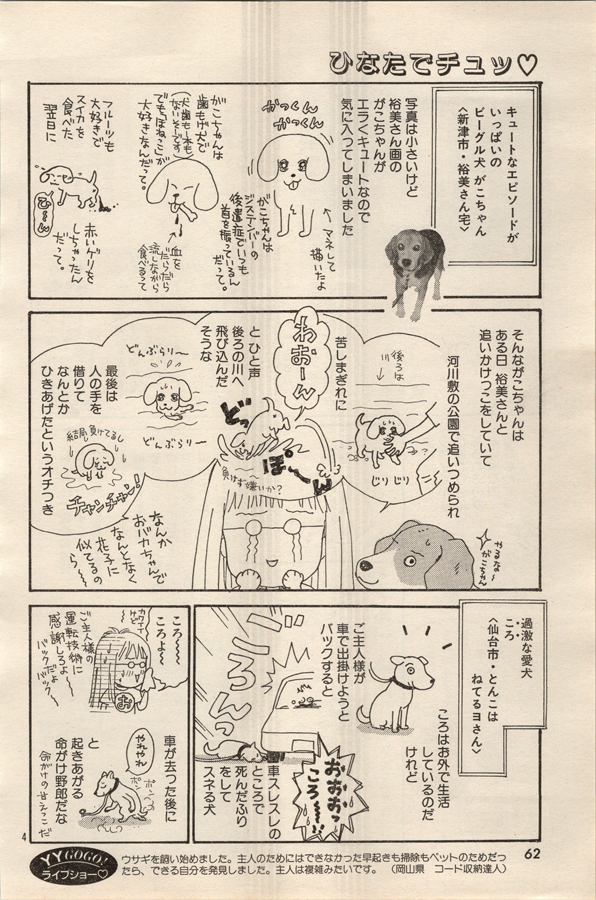 ひなたでチュッ♡
キュートなエピソードが
いっぱいの
ビーグル犬 がこちゃん
〈新津市・裕美さん宅〉
写真は小さいけど
裕美さん画の
がこちゃんが
エラくキュートなので
気に入ってしまいました
がっくん
がっくん
←マネして
描いたよ
がこちゃんは
ジステンパーの
後遺症でいつも
首を振っているん
だって。
がこちゃんは
歯もげ犬で
(犬歯も一本も
ないそーです)
でもちぼねっこが
大好きなんだって。
←血を
だらだら
流しながら
食べるって
フルーツも
大好きで
スイカを
食べた
翌日に
赤いゲリを
しちゃったん
だって。
そんながこちゃんは
ある日 裕美さんと
追いかけっこをしていて
河川敷の公園で追いつめられ
後ろは
川
じりじり
じりじり
苦しまぎれに
わおーん
と ひと声
後ろの川へ
飛び込んだ
そうな
どっ
ぽーん
負けず嫌いか?
どんぶらりー
どんぶらりー
最後は
人の手を
借りて
なんとか
ひきあげたというオチつき
結局負けてるし
チャンチャン!
なんか
おバカちゃんで
なんとなく
花子に
似てるの
ら〜
やるな〜
がこちゃん
過激な愛犬
ころ
〈仙台市・とんこは
ねてるヨさん〉
ころはお外で生活
しているのだ
けれど
ご主人様が
車で出掛けようと
バックすると
ころんっ
おおおっ
ころ〜〜!!
車スレスレの
ところで
死んだふり
をして
スネる犬
ころ〜
ころよ〜
カワイイ
けど〜
ご主人様の
運転技術に
感謝しろよ
バックだよ
バック〜
お
車が去った後に
やれやれ
ポン
ポン
と
起きあがる
命がけ野郎だな
命がけの甘えっこだ
4
YYGOGO!
ライブショー♡
ウサギを飼い始めました。主人のためにはできなかった早起きも掃除もペットのためだっ
たら、できる自分を発見しました。主人は複雑みたいです。 (岡山県 コード収納達人)
62